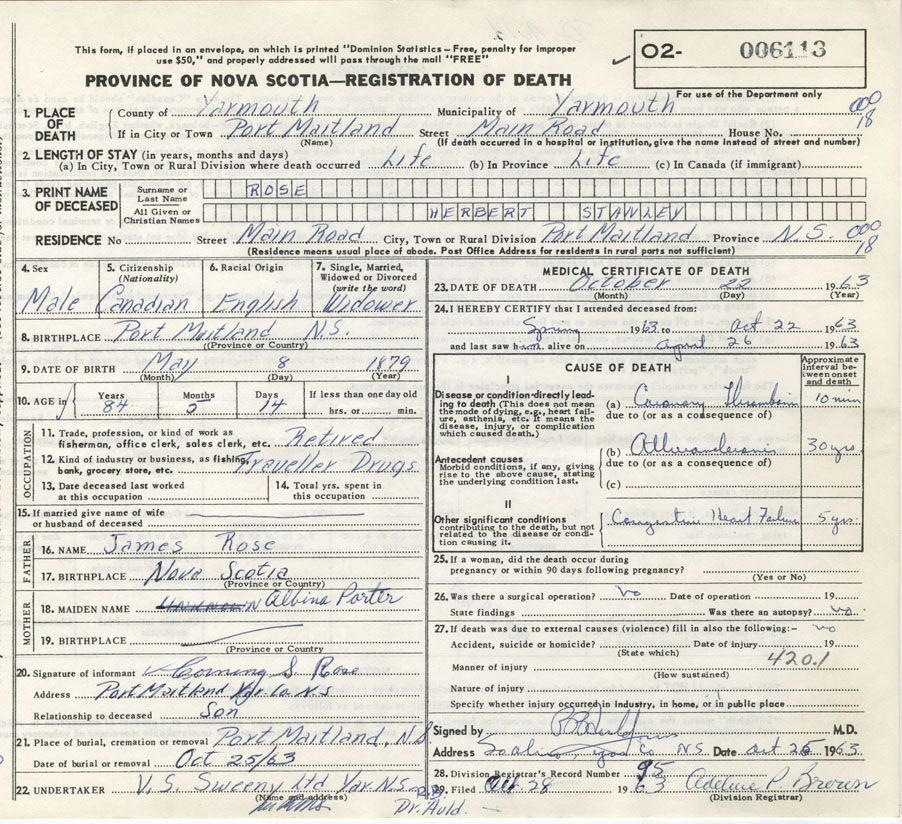 This form, if placed in an envelope, on which is printed "Dominion Statistics – Free, penalty for improper
use $50," and properly addressed will pass through the mail "FREE"
O2- 006113
PROVINCE OF NOVA SCOTIA—REGISTRATION OF DEATH
For use of the Department only
1. PLACE OF DEATH
County of Yarmouth Municipality of Yarmouth 000
If in City or Town Port Maitland Street Main Road House No. 18
(Name) (If death occurred in a hospital or institution, give the name instead of street and number)
2. LENGTH OF STAY (in years, months and days)
(a) In City, Town or Rural Division where death occurred Life (b) In Province Life (c) In Canada (if immigrant)
3. PRINT NAME OF DECEASED
Surname or Last Name ROSE
All Given or Christian Names HERBERT STANLEY
RESIDENCE No Street Main Road City, Town or Rural Division Port Maitland Province N.S. 000
(Residence means usual place of abode. Post Office Address for residents in rural parts not sufficient) 18
4. Sex Male
5. Citizenship (Nationality) Canadian
6. Racial Origin English
7. Single, Married, Widowed or Divorced (write the word) Widower
8. BIRTHPLACE Port Maitland N.S.
(Province or Country)
9. DATE OF BIRTH May 8 1879
(Month) (Day) (Year)
10. AGE in Years 84 Months 5 Days 14 If less than one day old
hrs. or min.
OCCUPATION
11. Trade, profession, or kind of work as
fisherman, office clerk, sales clerk, etc. Retired
12. Kind of industry or business, as fishing,
bank, grocery store, etc. Traveller Drugs
13. Date deceased last worked
at this occupation
14. Total yrs. spent in
this occupation
15. If married give name of wife
or husband of deceased
FATHER
16. NAME James Rose
17. BIRTHPLACE Nova Scotia
(Province or Country)
MOTHER
18. MAIDEN NAME Unknown Albina Porter
19. BIRTHPLACE
(Province or Country)
20. Signature of informant Corning S Rose
Address Port Maitland Yar. Co. N S
Relationship to deceased Son
21. Place of burial, cremation or removal Port Maitland, N.S
Date of burial or removal Oct 25/63
22. UNDERTAKER V. S. Sweeny Ltd Yar. N.S.
(Name and address)
Dr. Auld.
MEDICAL CERTIFICATE OF DEATH
23. DATE OF DEATH October 22 1963
(Month) (Day) (Year)
24. I HEREBY CERTIFY that I attended deceased from:
Spring 1963 to Oct 22 1963
and last saw him alive on April 26 1963
CAUSE OF DEATH
Approximate interval between onset and death
I
Disease or condition directly leading to death (This does not mean the mode of dying, e.g., heart failure, asthenia, etc. It means the disease, injury, or complication which caused death.)
(a) Coronary Thrombosis 10 min
due to (or as a consequence of)
Antecedent causes
Morbid conditions, if any, giving rise to the above cause, stating the underlying condition last.
(b) 30 yrs
due to (or as a consequence of)
(c)
II
Other significant conditions contributing to the death, but not related to the disease or condition causing it.
Congestive Heart Failure 5 yrs.
25. If a woman, did the death occur during
pregnancy or within 90 days following pregnancy?
(Yes or No)
26. Was there a surgical operation? no Date of operation 19
State findings Was there an autopsy? no
27. If death was due to external causes (violence) fill in also the following:– no
Accident, suicide or homicide? Date of injury 19
(State which) 420.1
Manner of injury
(How sustained)
Nature of injury
Specify whether injury occurred in industry, in home, or in public place
Signed by M.D.
Address Yar Co N.S. Date Oct 25 1963
28. Division Registrar's Record Number 95
29. Filed Oct 28 1963 Adeline P. Brown
(Division Registrar)